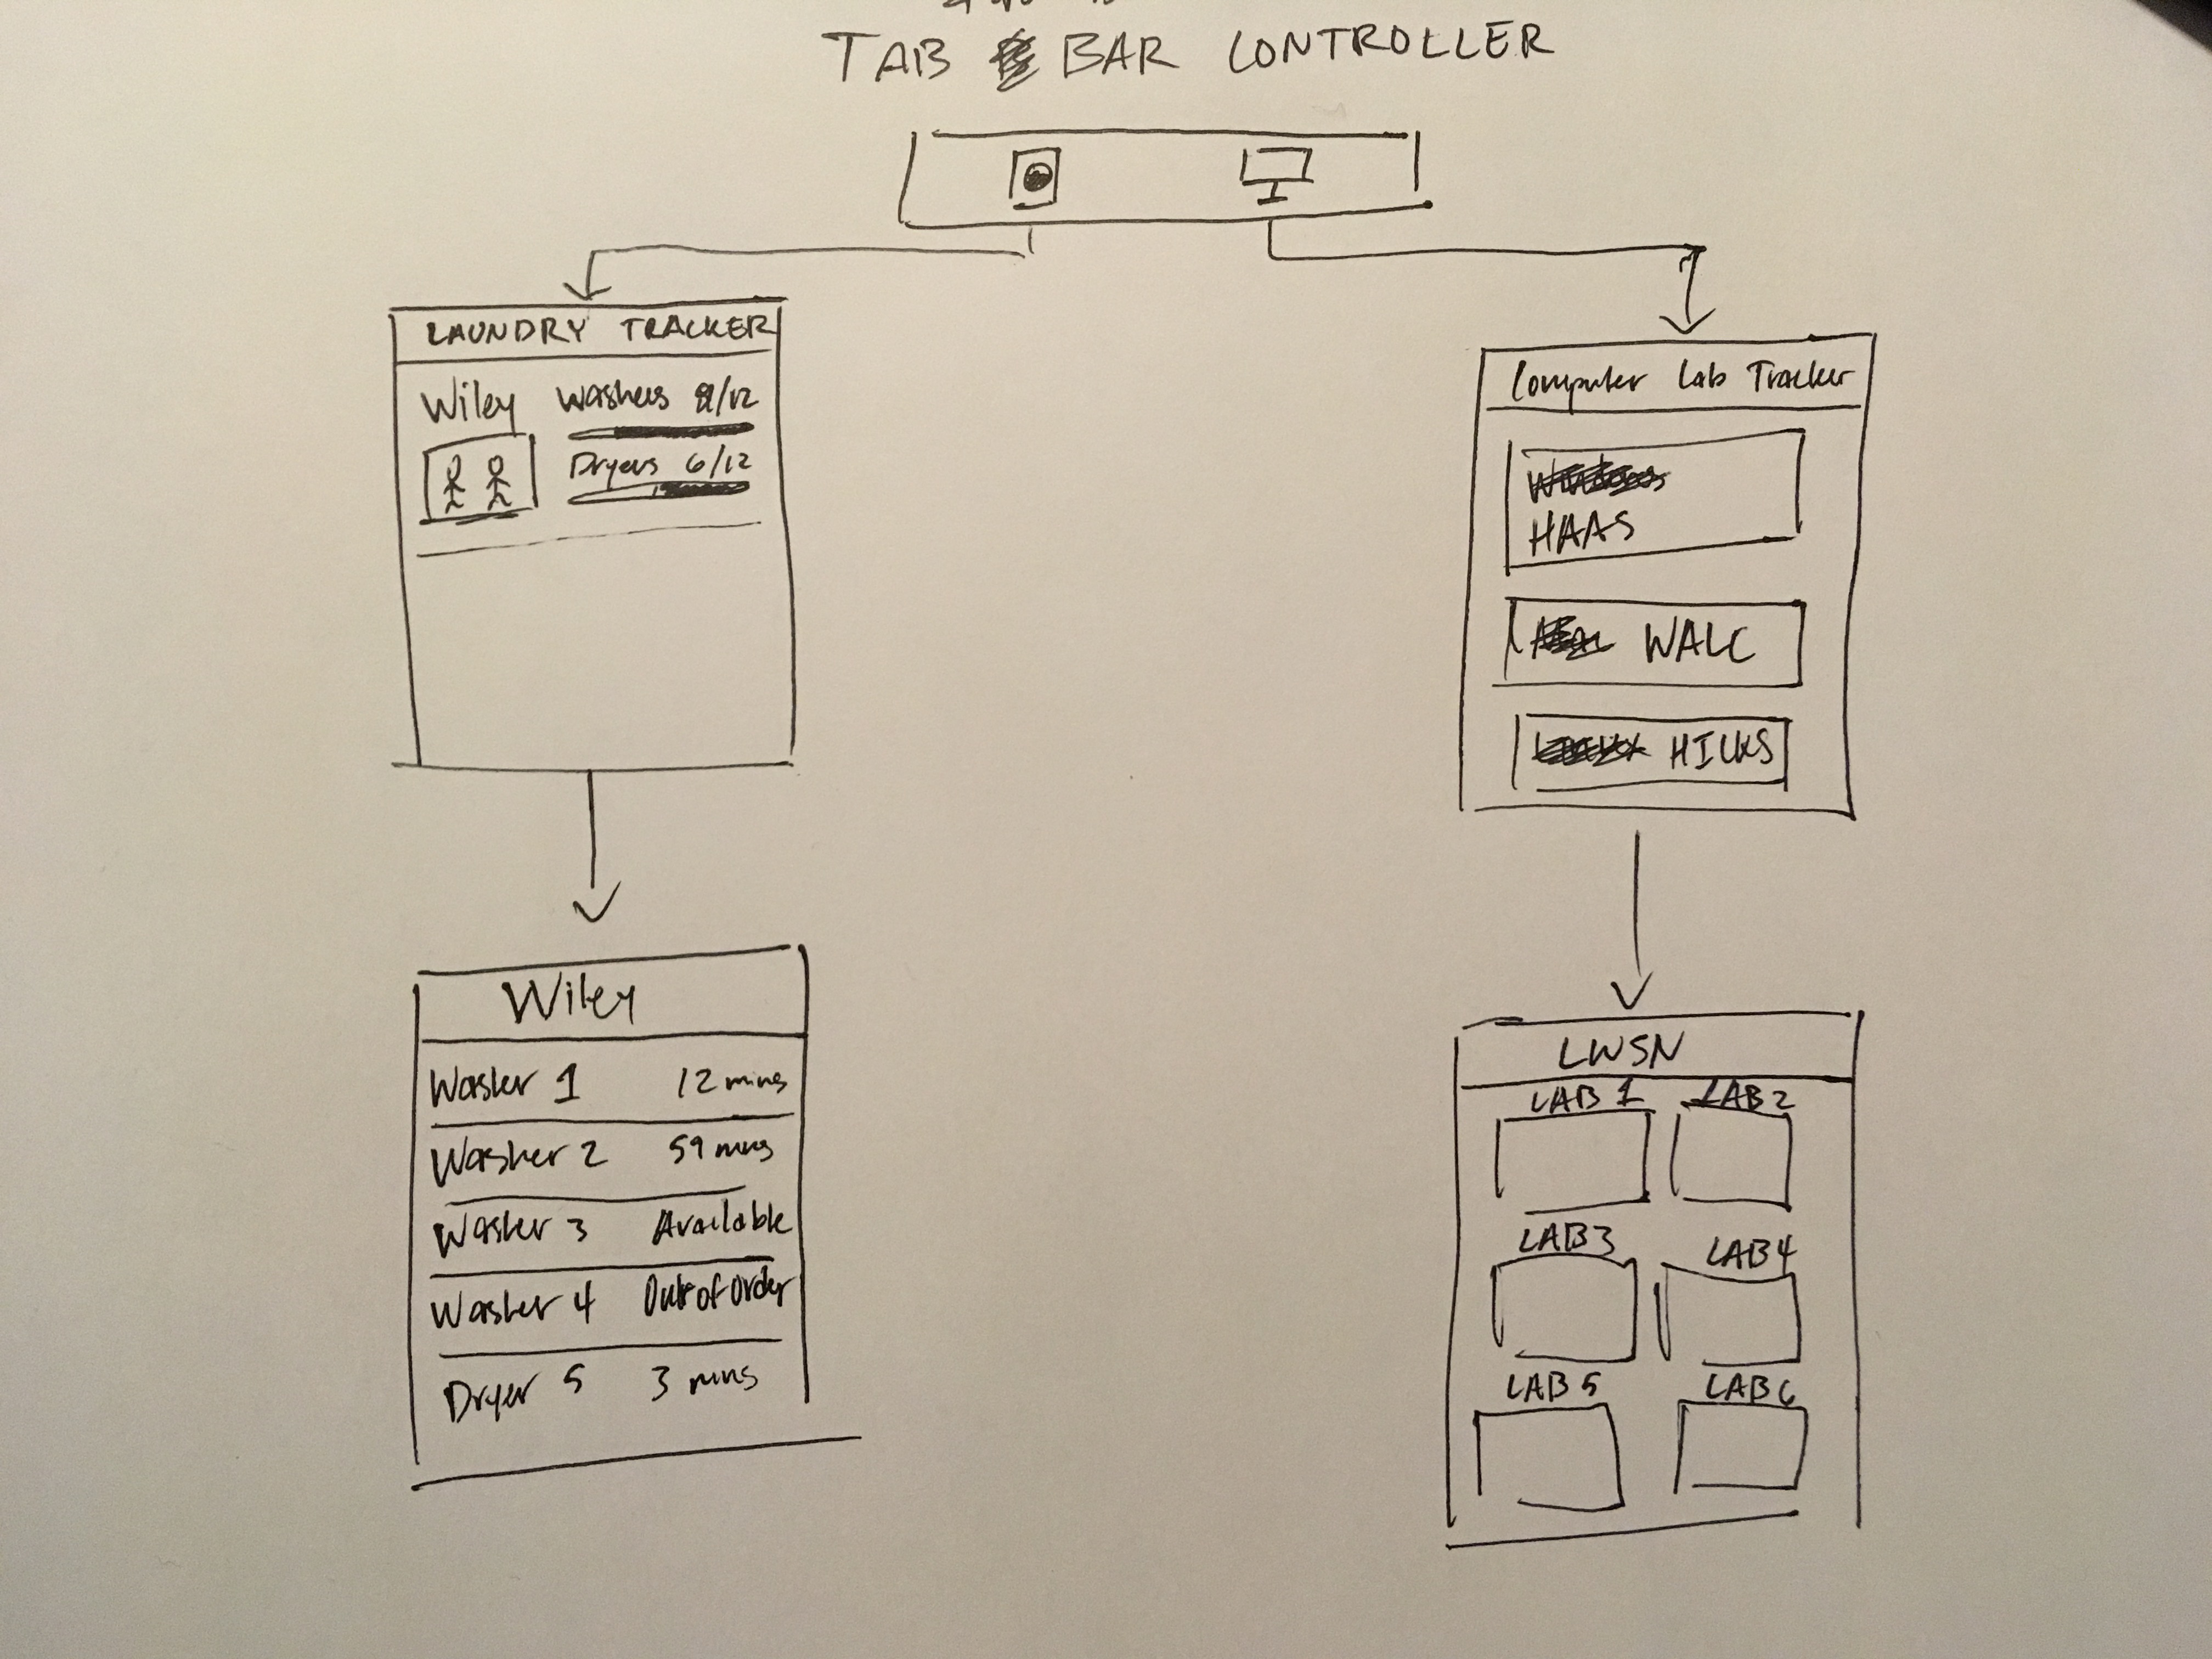 TAB BAR CONTROLLER
LAUNDRY TRACKER
Wiley Washers 8/12
Dryers 6/12
Wiley
Washer 1 12 mins
Washer 2 59 mins
Washer 3 Available
Washer 4 Out of Order
Dryer 5 3 mins
Computer Lab Tracker
HAAS
WALC
HICKS
LWSN
LAB 1 LAB 2
LAB 3 LAB 4
LAB 5 LAB 6